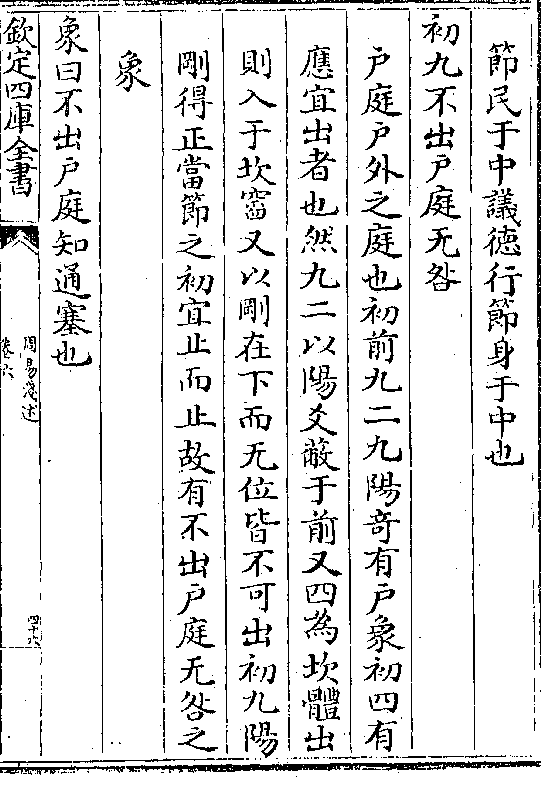 節民于中議徳行節身于中也
初九不出户庭无咎
户庭户外之庭也初前九二九陽竒有户象初四有
應宜出者也然九二以陽爻蔽于前又四為坎體出
則入于坎窞又以剛在下而无位皆不可出初九陽
剛得正當節之初宜止而止故有不出户庭无咎之
象
象曰不出户庭知通塞也
欽定四庫全書
周易淺述
卷六
四十六